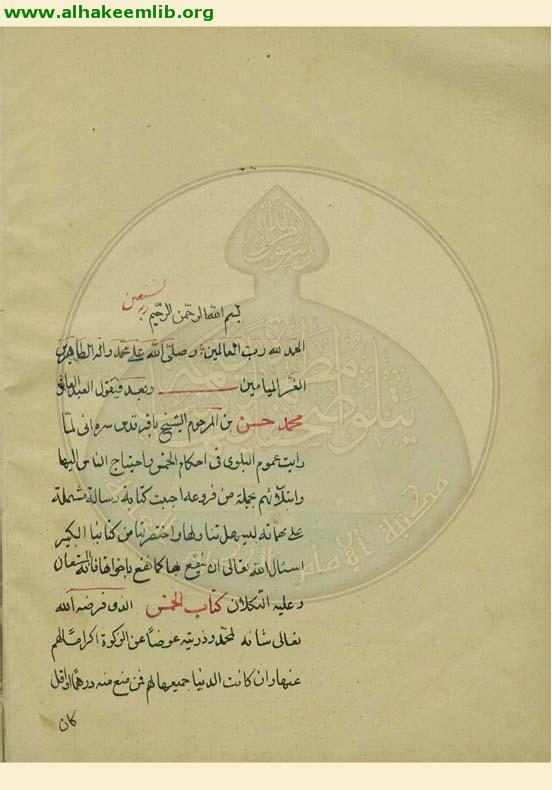 www.alhakeemlib.org
بسم الله الرحمن الرحيم وبه نستعين
الحمد لله رب العالمين وصلى الله على محمد واله الطاهرين
الغر الميامين وبعد فيقول العبد العاثر
محمد حسن بن المرحوم الشيخ باقر قدس سره انى لما
رايت عموم البلوى فى احكام الخمس واحتياج الناس اليها
وابتلائهم بجملة من فروعه اجبت كتابة رسالة مشتملة
على مهماته ليسهل تناولها واختصرتها من كتابنا الكبير
اسئال الله تعالى ان ينفع بها كما نفع باخواتها فانه المستعان
وعليه التكلان كتاب الخمس الذى فرضه الله
تعالى شانه لمحمد وذريته عوضا عن الزكوة اكراما لهم
عنها وان كانت الدنيا جميعها لهم فمن منع منه درهما او اقل
كان